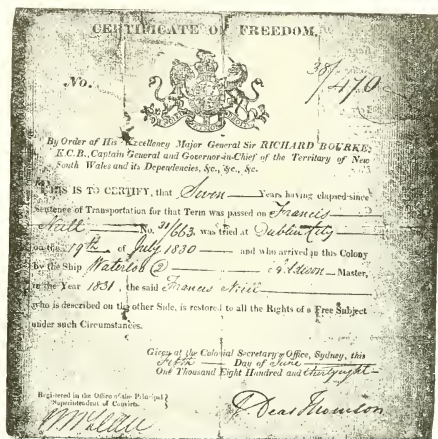 CERTIFICATE OF FREEDOM.
No. 38/470
By Order of His Excellency Major General Sir RICHARD BOURKE,
K.C.B., Captain General and Governor-in-Chief of the Territory of New
South Wales and its Dependencies, &c., &c., &c.
THIS IS TO CERTIFY, that Seven Years having elapsed since
Sentence of Transportation for that Term was passed on Francis
Neill No. 31/663 was tried at Dublin City
on the 19th of July 1830 and who arrived in this Colony
by the Ship Waterloo (2) Addison Master,
in the Year 1831, the said Francis Neill
who is described on the other Side, is restored to all the Rights of a Free Subject
under such Circumstances.
Given at the Colonial Secretary's Office, Sydney, this
Fifth Day of June
One Thousand Eight Hundred and thirty eight
Registered in the Office of the Principal
Superintendent of Convicts.
E Deas Thomson